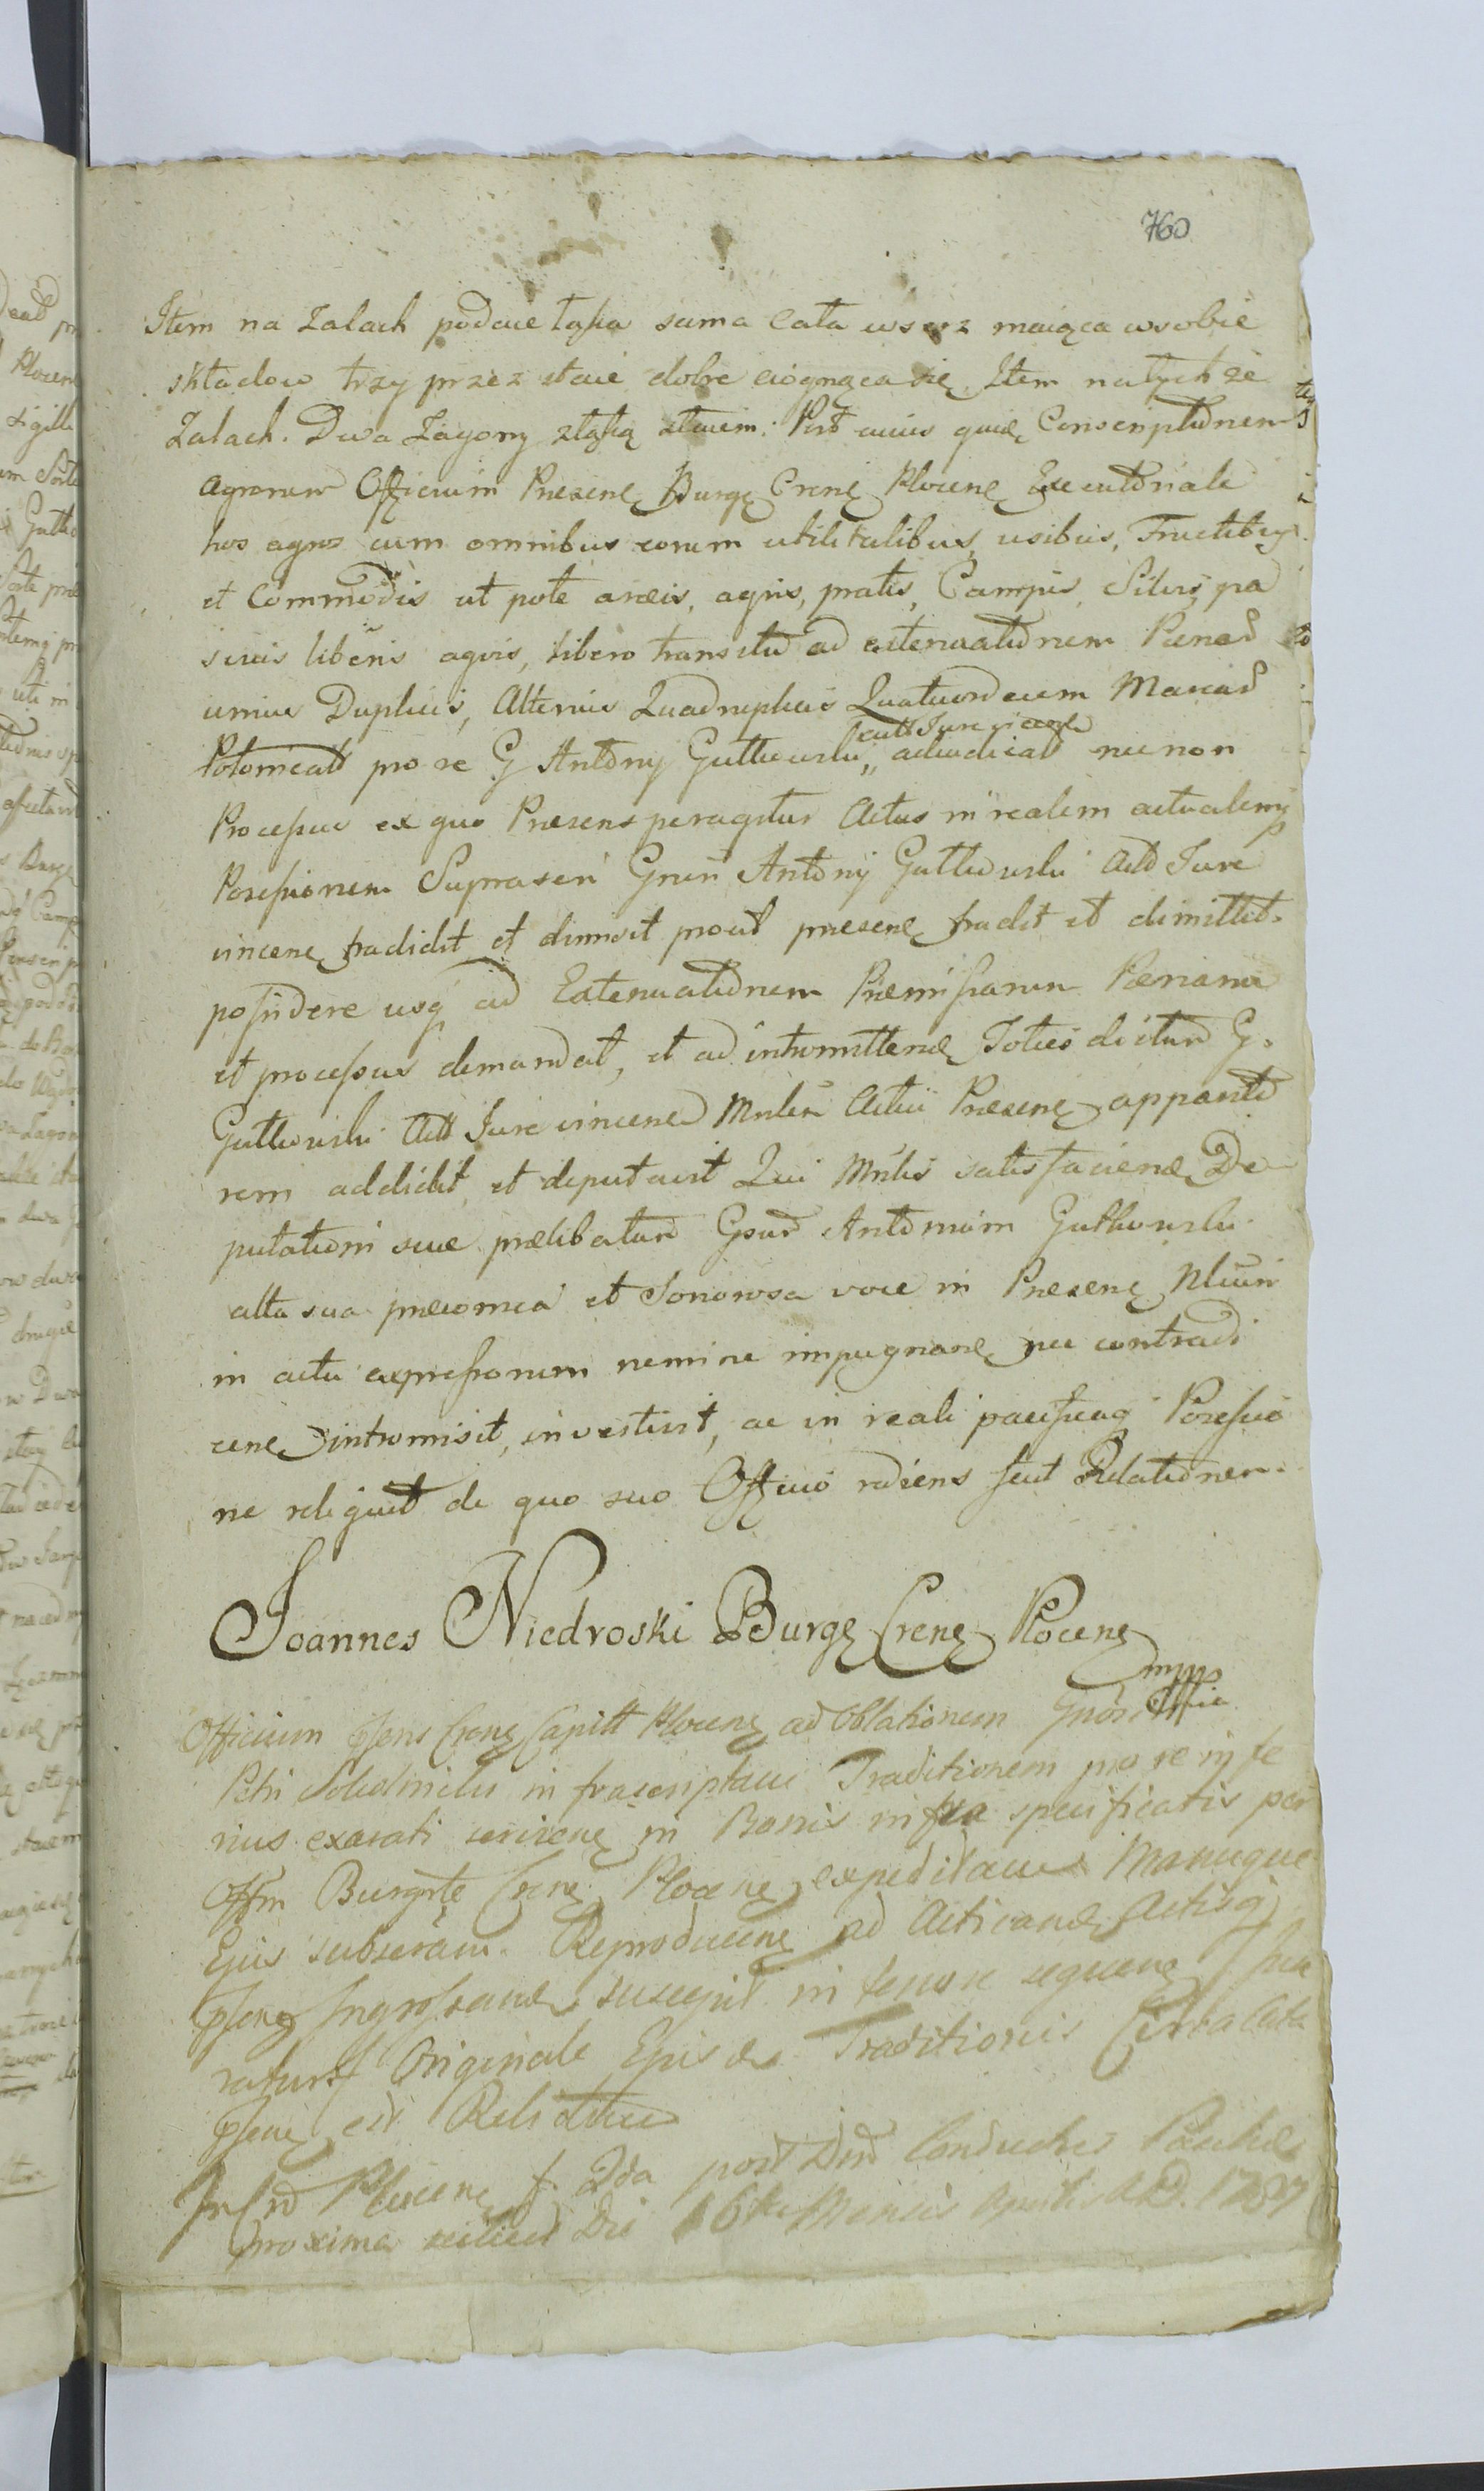 760
Item na Zalach podaie łąka sama Cała wszez maiąca wsobie
składow trzy przez staie dobre ciągnąca się Item natychże
Zalach. Dwa Zagony złąką staiem. Post cuius quię Conscriptionem
agrorum Officium Presenę Burgę Crenę Plocenę Executoriale
hos agros cum omnibus eorum utilitatibus, usibus, Fructibus
et Commodis ut pote areis, agris, pratis, Campis, Silvis pa
scuis liberis agris, libero transitu ad extenuationem Penarum
unius Duplicis, Alterius Quadruplicis Quatuordecim Marcar
pro se G Antony Gutkowski adiudicat necnon
Actt Jure
Processus ex quo Praesens peragitur Actus in realem actualemq
Possessionem Suprascri Antony Gutkowski Act Jure
vincenę tradidit et dimisit prout presenę tradit et dimittit.
possidere usq ad Extenuationem Praemissarum Paenarum
et processus demandat, et ad intromittend Toties dictum G.
Gutkowski Actt Jure vincenę Mnlem Actui Presenę apparito
rem addidit et deputavit Qui Mnlis satisfaciend De
putationi suae praelibatum Antonium Gutkowski
alta sua preconica et Sonorosa voce in Presenę
in actu expressorum nemine impugnanę nec contradi
cenę intromisit, investivit, ac in reali pacificaq Possessio
ne reliquit de quo suo Officio rediens fecit Relationem.
Joannes Niedroski Burgę Crenę Plocenę
mpp
Officium psens Crenę Capitt Plocenę ad Oblationem
Petri infrascriptam Traditionem pro re infe
rius exarati servienę in Bonis infra specificatis per
Offm Burgrte Crenę Plocenę expeditam Manuque
Ejus subscram. Reproducenę ad Acticand Actisq
psenę Ingrossand suscepit in tenore sequenę
Originale Ejusdem Traditionis
psenę est Relictum
Plocenę f. 2da post Dnd Conductus Paschae
proxima scilicet Die 16ta Mensis Aprilis A.D. 1787